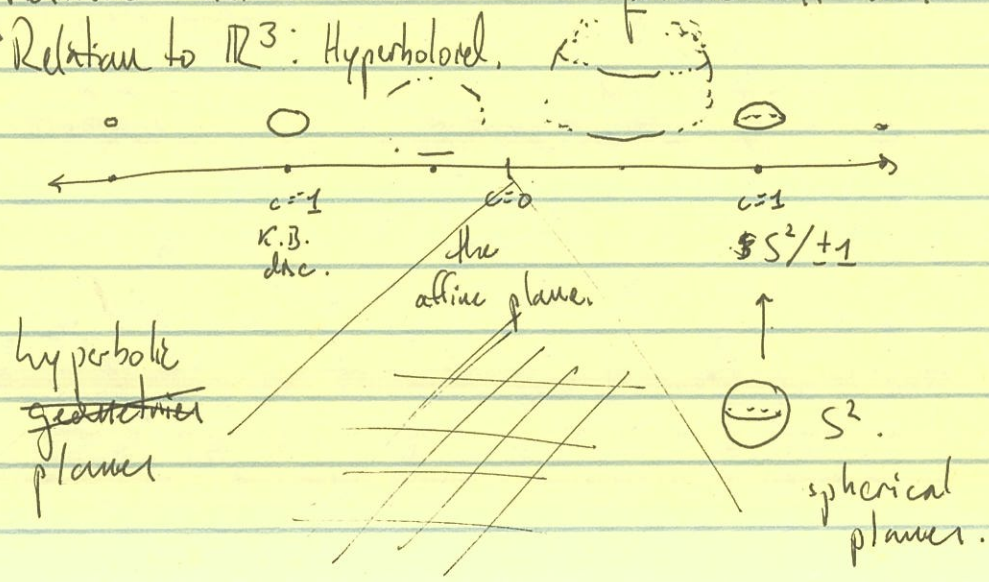 Relation to ℝ³: Hyperboloid.
c=-1
c=0
c=1
K.B.
disc.
the
affine plane.
S²/±1
hyperbolic
geometries
planes
S².
spherical
planes.